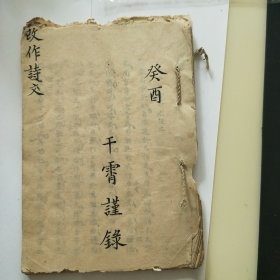 癸酉
改作詩文
干霄謹錄